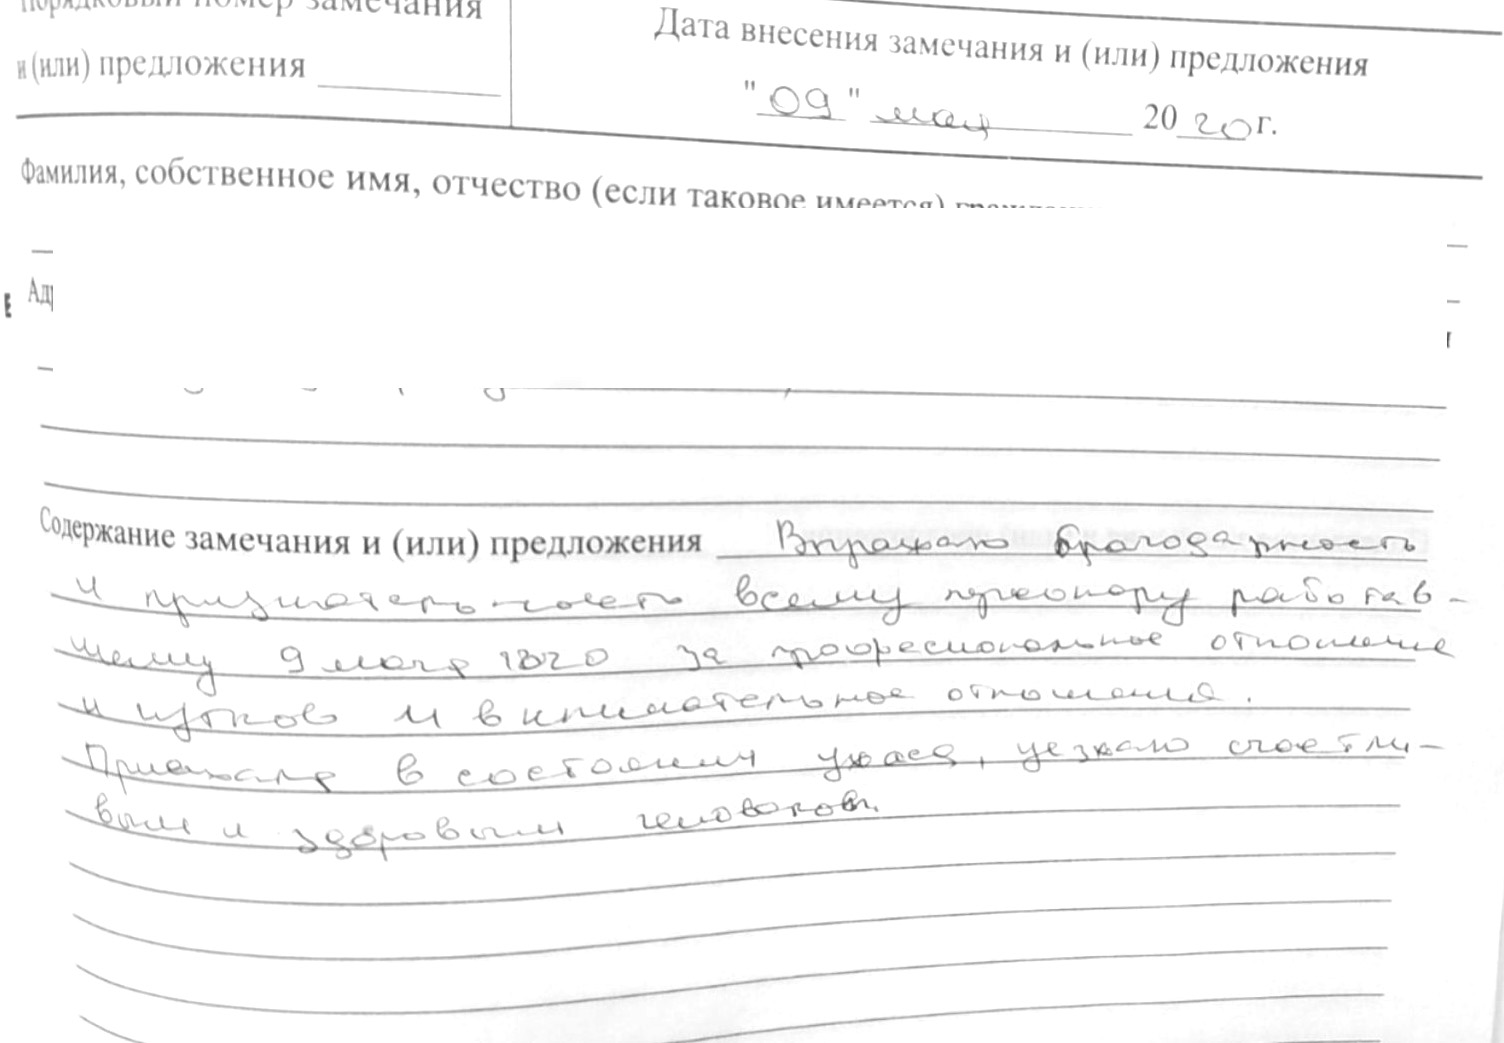 Порядковый номер замечания
и (или) предложения
Дата внесения замечания и (или) предложения
"09" мая 2020 г.
Фамилия, собственное имя, отчество (если таковое имеется)
Содержание замечания и (или) предложения Выражаю благодарность
и признательность всему персоналу работав-
шему 9 мая 2020 за профессиональное отношение
и чуткое и внимательное отношение.
Приехала в состоянии ужаса, уезжаю счастли-
вым и здоровым человеком.